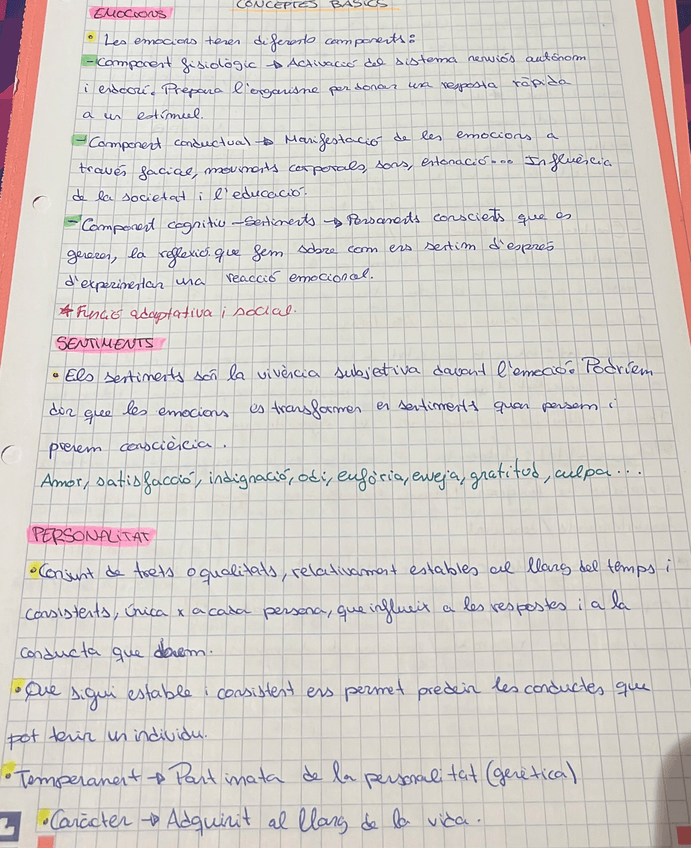 CONCEPTES BÀSICS
EMOCIONS
• Les emocions tenen diferents components:
- Component fisiològic → Activació del sistema nerviós autònom
i endocrí. Prepara l'organisme per donar una resposta ràpida
a un estímul.
- Component conductual → Manifestació de les emocions a
través facial, moviments corporals, sons, entonació.... Influència
de la societat i l'educació.
- Component cognitiu - Sentiments → Pensaments conscients que es
generen, la reflexió que fem sobre com ens sentim d'esprés
d'experimentar una reacció emocional.
* Funció adaptativa i social.
SENTIMENTS
• Els sentiments són la vivència subjetiva davant l'emoció. Podríem
dir que les emocions es transformen en sentiments quan pensem i
prenem consciència.
Amor, satisfacció, indignació, odi, eufòria, enveja, gratitud, culpa...
PERSONALITAT
• Conjunt de trets o qualitats, relativament estables al llarg del temps i
consistents, única x a cada persona, que influeix a les respostes i a la
conducta que donem.
• Que sigui estable i consistent ens permet predeir les conductes que
pot tenir un individu.
• Temperament → Part innata de la personalitat (genètica)
• Caràcter → Adquirit al llarg de la vida.